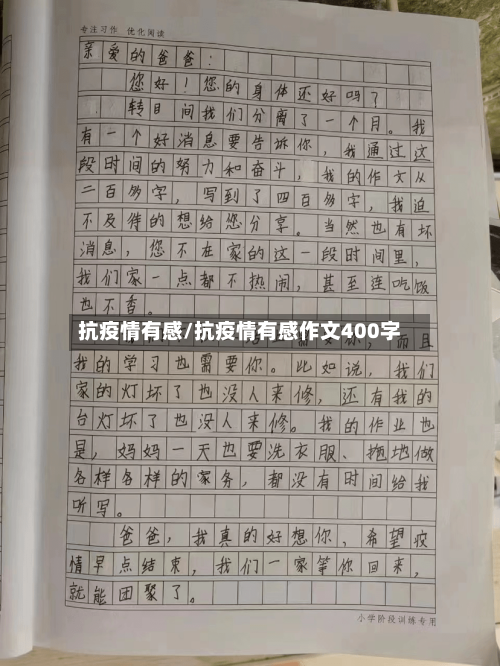 专注习作 优化阅读
亲爱的爸爸：
您好！您的身体还好吗？
转目间我们分离了一个月。我
有一个好消息要告诉你，我通过这
段时间的努力和奋斗，我的作文从
二百多字，写到了四百多字，我迫
不及待的想给您分享。当然也有坏
消息，您不在家的这一段时间里，
我们家一点都不热闹，甚至连吃饭
也不香。
抗疫情有感/抗疫情有感作文400字
而且
我的学习也需要你。比如说，我们
家的灯坏了也没人来修，还有我的
台灯坏了也没人来修。我的作业也
是，妈妈一天也要洗衣服、拖地做
各样各样的家务，都没有时间给我
听写。
爸爸，我真的好想你，希望疫
情早点结束，我们一家等你回来，
就能团聚了。
小学阶段训练专用